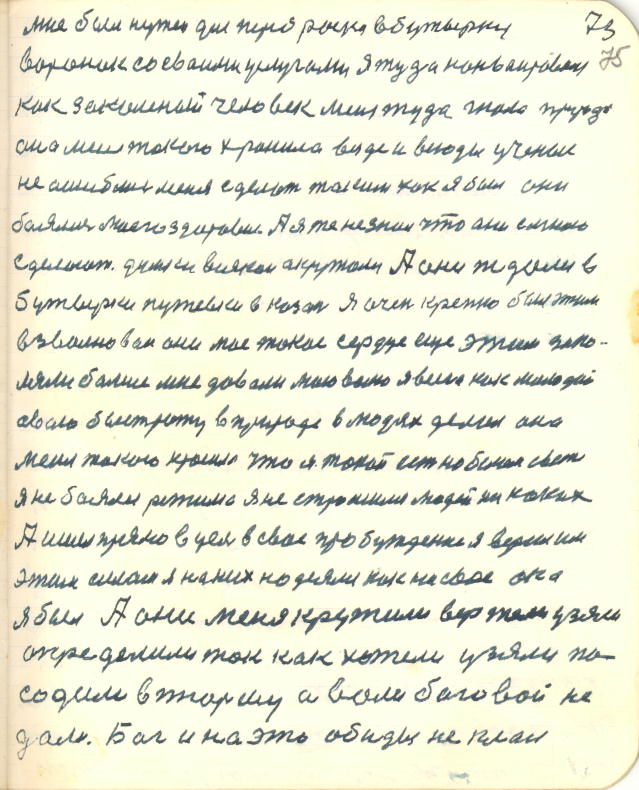 73
75
мне были нужен для порядока в бутырки
воронок со своими услугами я туда конвоировал
как закаленой человек меня туда гнала природа
она меня такого хранила везде и всюду ученые
не ошиблись меня сделат таким как я был они
боялися моего здоровия А я же не знал что они смною
сделают. думки всякои окружали А они ждали в
бутырки путевки в казан я очен крепко был этим
взволнован они мое такое сердце еще этим запо-
леяли болше мне довали мою волю я вел как молодой
свою быстроту в природе в людях делал она
меня такого хранила что я такой ест на белом свете
я не боялся режима я не страшился людей ни каких
А ишел прямо в цел в свое пробуждение я верил им
этим силам я на них надеялся как на свое она
я был А они меня крутили вертели узяли
определили так как хотели узяли по-
содили в тюрму а воли боговой не
дали. Бог и на это обиды не клал